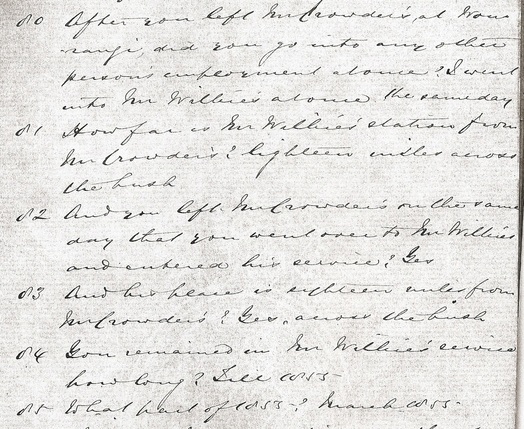 80 After you left Mr Crowder's, at Wour
rangi, did you go into any other
person's employment at once? I went
into Mr Willie's at once the same day
81 How far is Mr Willie's station from
Mr Crowder's? Eighteen miles across
the bush
82 And you left Mr Crowder's on the same
day that you went over to Mr Willie's
and entered his service? Yes
83 And his place is eighteen miles from
Mr Crowder's? Yes, across the bush
84 You remained in Mr Willie's service
how long? Till 1855
85 What part of 1855? March 1855